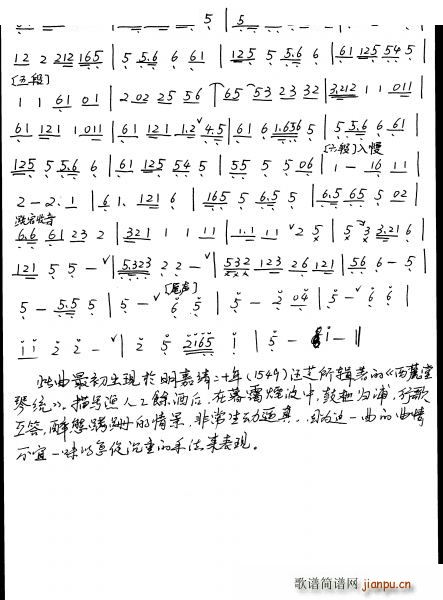 5 | 5
12 2 212 165 | 5 5.6 6 61 | 125 5 5.6 6 | 61 125 54 5
[五段]
1 1 61 01 | 2.02 25 56 | 65 53 23 32 | 3.212 1 1 011
61 121 1 011 | 61 121 1.2 4.5 | 61 6 1.656 5 | 5 5.6 6 61
[六段]入慢
125 5 5.6 6 | 61 125 54 5 | 55 5 5 06 | 1 - 16 11
2 - 2. 1 | 61. 121 6 | 165 5 6.5 5 | 6.5 65 5 02
6.6 61 23 2 | 321 1 1 11 | 1.1 11 2 5 | 5 3 3.21 6
121 5 5 - | 5.323 2 2 - | 532 123 26 121 | 56 6 - 5
[尾声]
5 - 5.5 5 | 5 - 6 5 | 5 - 2 04 | 5 - 6 6
11 2 2 - | 2 5 2165 1 | 5 - 1 - ||
此曲最初出现于明嘉靖二十年(1549)汪芝所辑著的《西麓堂
琴统》。描写渔人工馀酒后，在烟波中，鼓枻 行歌
互答，醉 的情景，非常生动逼真，因为这一曲的曲情
不宜一味以急促沉重的手法来表现。
歌谱简谱网
jianpu.cn